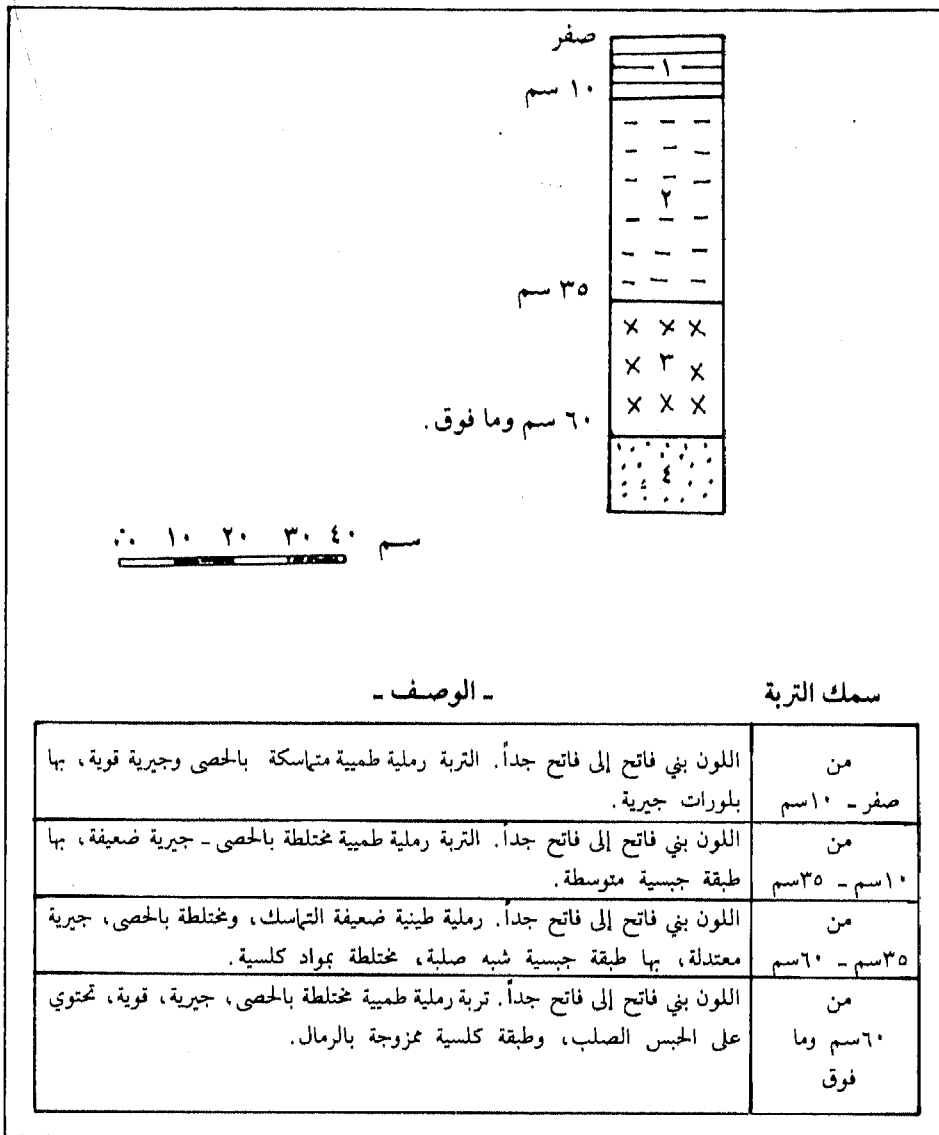 صفر
١
١٠ سم
٢
٣٥ سم
٣
٦٠ سم وما فوق.
٤
٠ ١٠ ٢٠ ٣٠ ٤٠ سم
سمك التربة
- الوصف -
من
صفر - ١٠سم
اللون بني فاتح إلى فاتح جداً. التربة رملية طميية متماسكة بالحصى وجيرية قوية، بها
بلورات جيرية.
من
١٠سم - ٣٥سم
اللون بني فاتح إلى فاتح جداً. التربة رملية طميية مختلطة بالحصى - جيرية ضعيفة، بها
طبقة جبسية متوسطة.
من
٣٥سم - ٦٠سم
اللون بني فاتح إلى فاتح جداً. رملية طينية ضعيفة التماسك، ومختلطة بالحصى، جيرية
معتدلة، بها طبقة جبسية شبه صلبة، مختلطة بمواد كلسية.
من
٦٠سم وما
فوق
اللون بني فاتح إلى فاتح جداً. تربة رملية طميية مختلطة بالحصى، جيرية، قوية، تحتوي
على الحبس الصلب، وطبقة كلسية ممزوجة بالرمال.